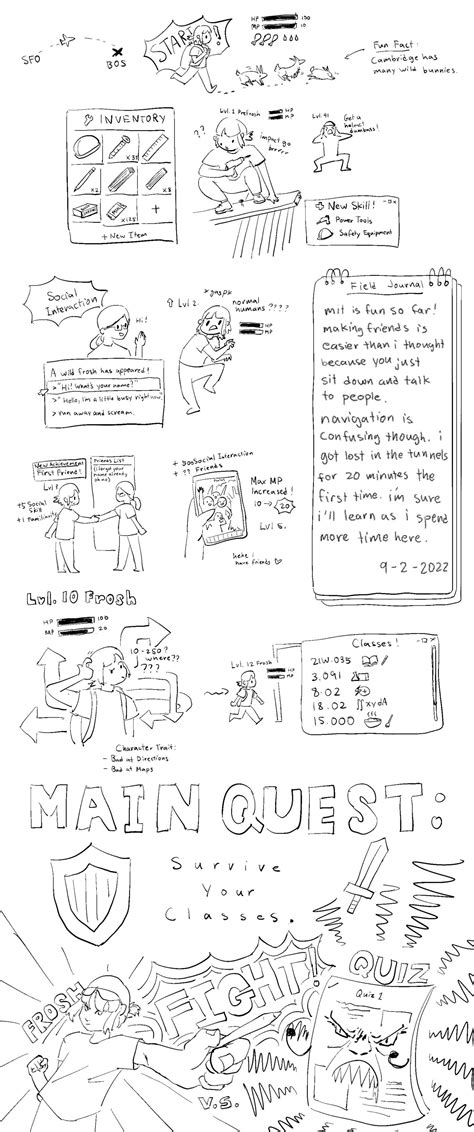 SFO
BOS
START!
HP 100
MP 10
Fun Fact:
Cambridge has
many wild bunnies.
INVENTORY
x35
x2
x8
x125
+
+ New Item
Lvl. 1 Prefrosh
HP
MP
??
impact go
brrrr
Lvl. 41
Get a
helmet
dumbass!
+ New Skill!
Power Tools
Safety Equipment
Social
Interaction
Hi!
A wild frosh has appeared!
> "Hi! What's your name?"
> "Hello, I'm a little busy right now."
> run away and scream.
Lvl 2.
*gasp*
normal
humans????
HP
MP
Field Journal
mit is fun so far!
making friends is
easier than i thought
because you just
sit down and talk
to people.
navigation is
confusing though. i
got lost in the tunnels
for 20 minutes the
first time. i'm sure
i'll learn as i spend
more time here.
9-2-2022
New Achievement
First Friend!
Friends List
(I forgot your
name already
oh no)
+5 Social
Skill
+1 Familiarity
+500 Social Interaction
+ ?? Friends
Max MP
Increased!
10 → 20
Lvl 5.
hehe i
have friends
Lvl. 10 Frosh
HP 100
MP 20
10-250?
where??
???
Character Trait:
- Bad at Directions
- Bad at Maps
Lvl. 12 Frosh
HP
MP
Classes!
21W.035
3.091
8.02
18.02 ∬xydA
15.000
MAIN QUEST:
Survive
Your
Classes.
FROSH
FIGHT!
QUIZ
Quiz 1
V.S.